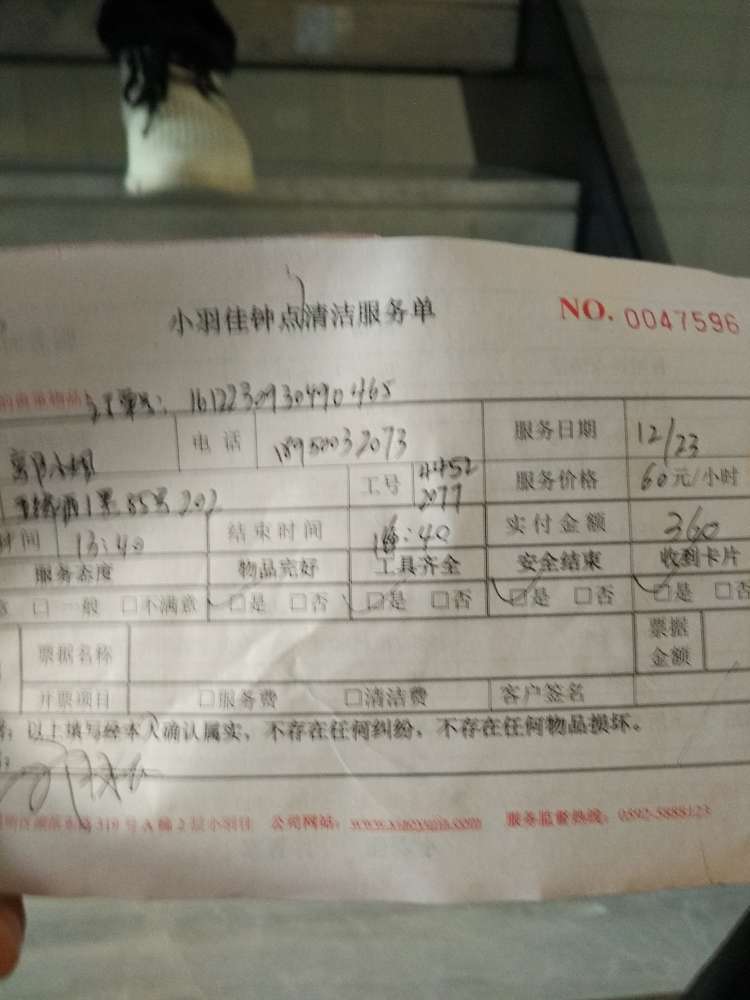 小羽佳钟点清洁服务单 NO. 0047596
贵重物品 订单号: 1612230930490465
电话 18950032073 服务日期 12/23
202 工号 4452 2077 服务价格 60元/小时
时间 13:40 结束时间 16:40 实付金额 360
服务态度 物品完好 工具齐全 安全结束 收到卡片
意 □一般 □不满意 □是 □否 □是 □否 □是 □否 □是 □否
票据名称 票据金额
开票项目 □服务费 □清洁费 客户签名
以上填写经本人确认属实，不存在任何纠纷，不存在任何物品损坏。
319号A梯2层小羽佳 公司网站：www.xiaoyujia.com 服务监督热线：0592-5888123